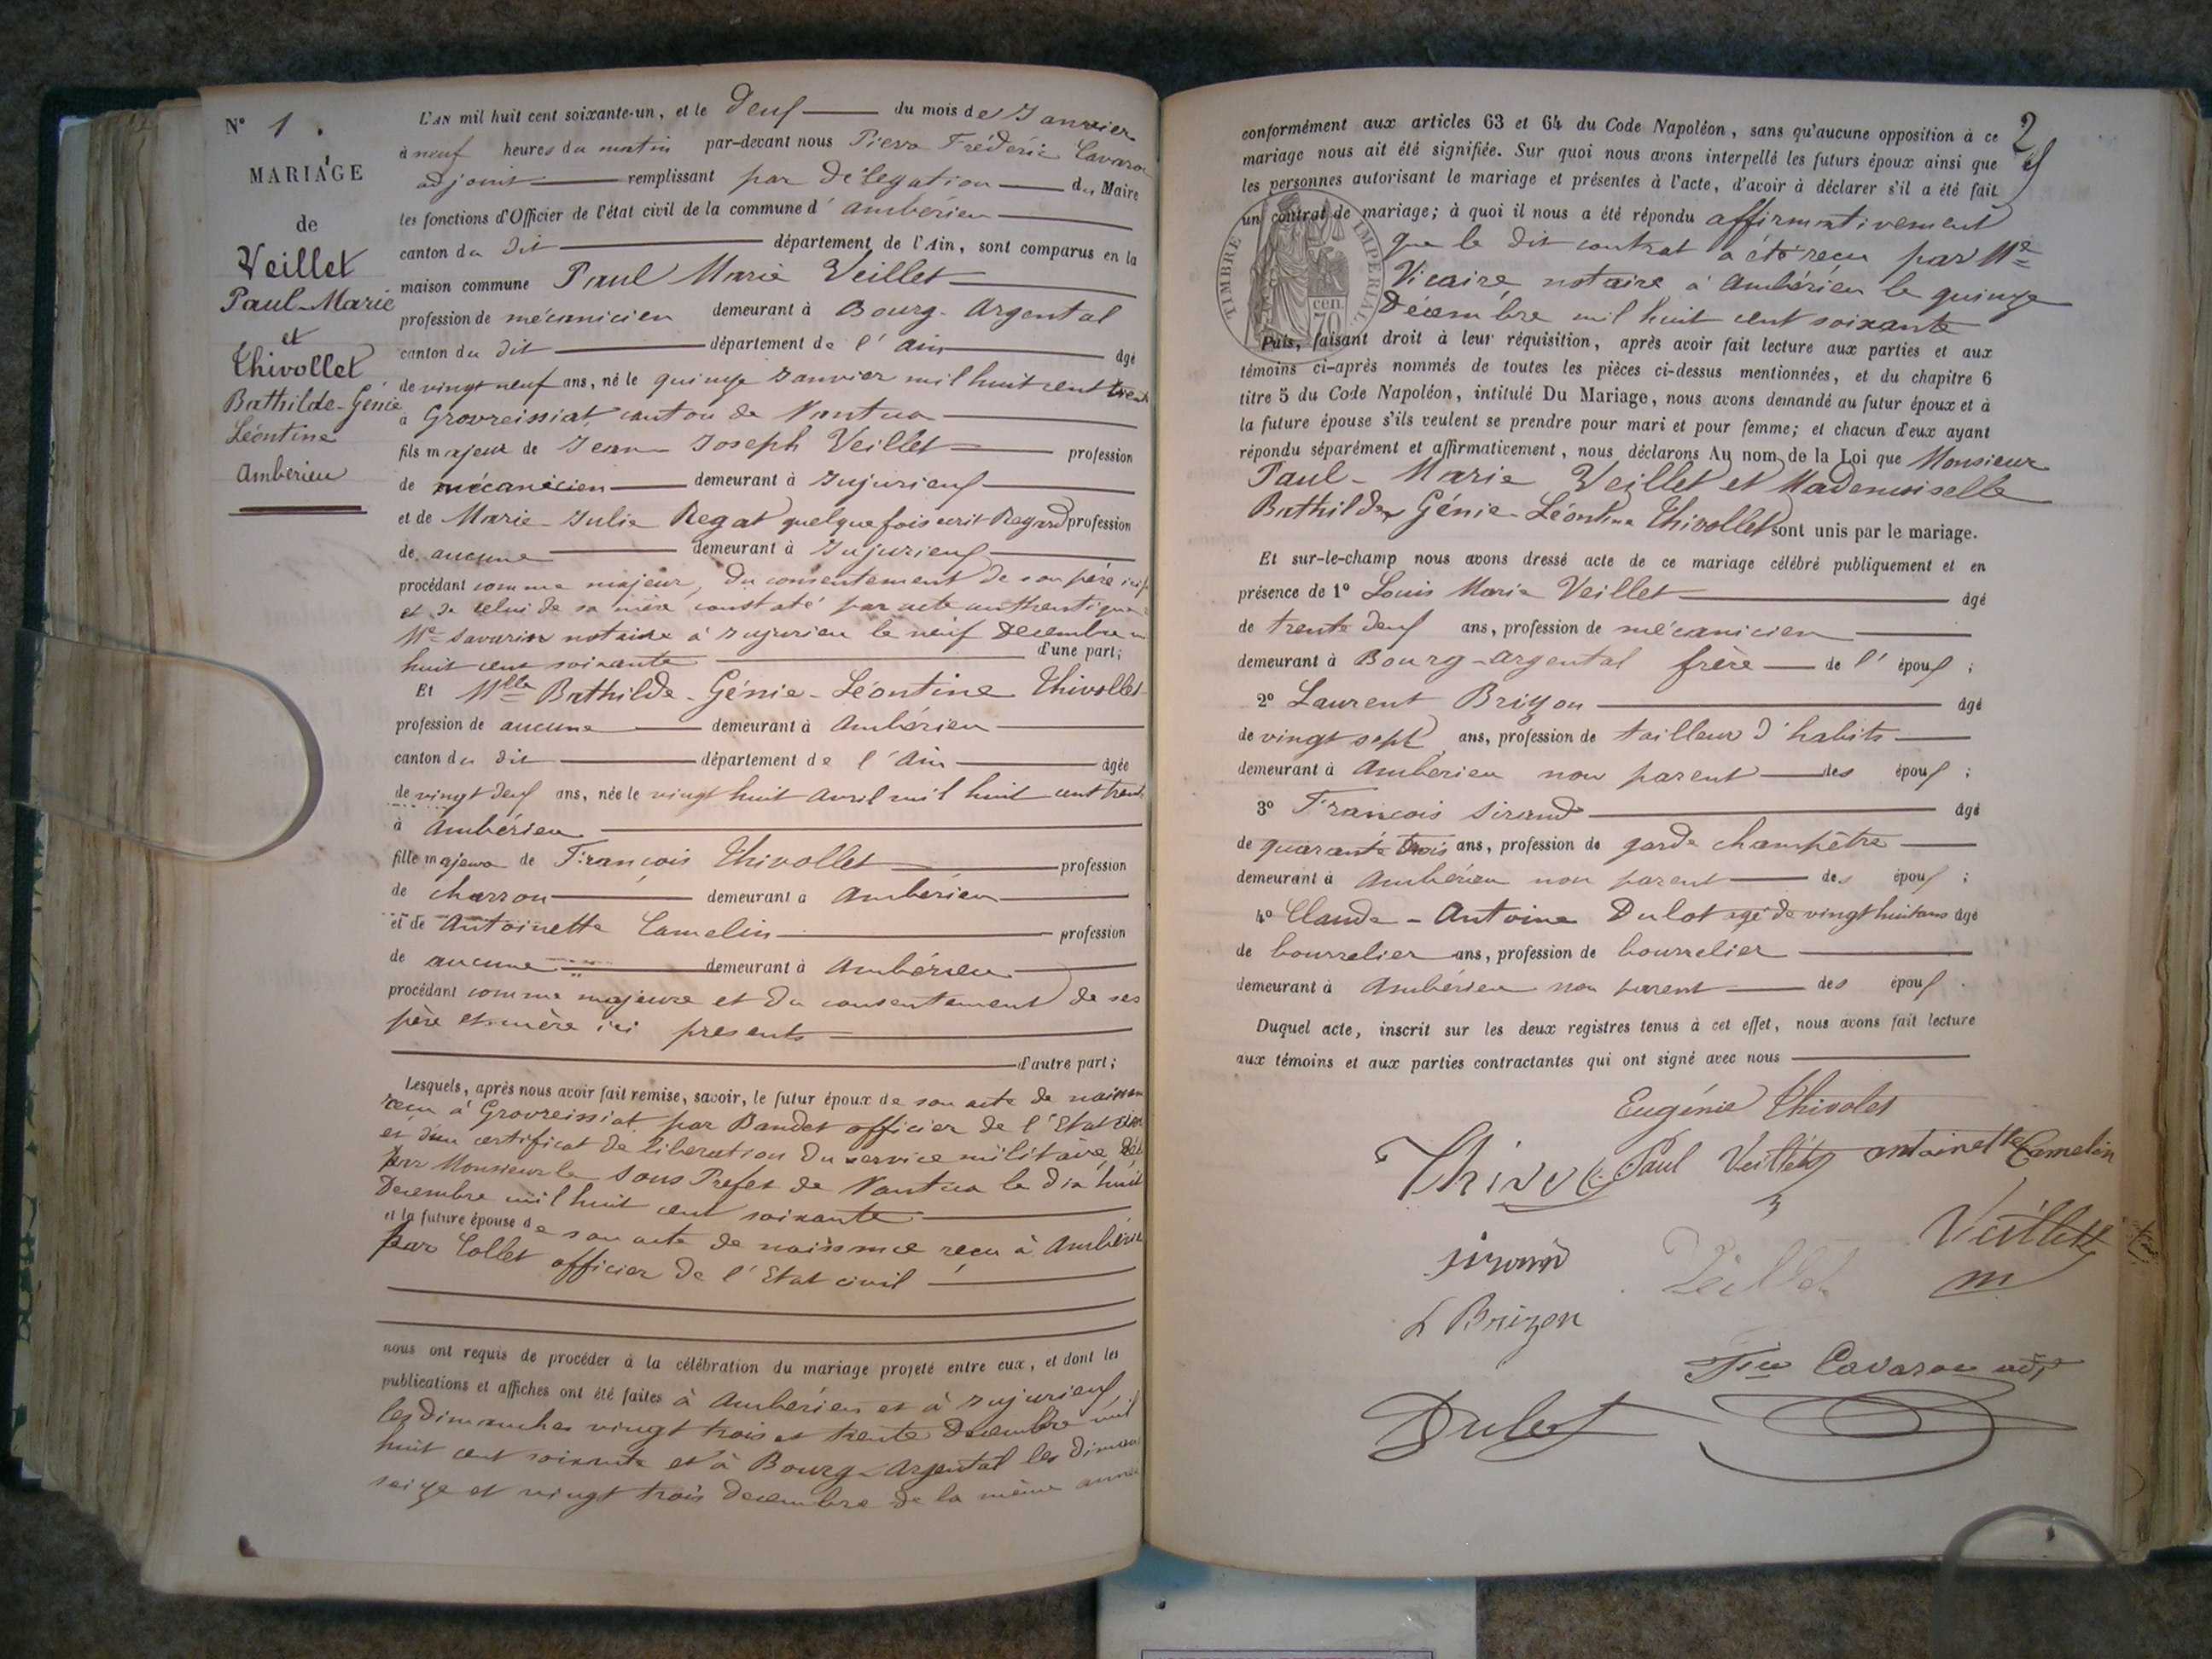 N° 1.
MARIAGE
de
Veillet
Paul-Marie
et
Thivollet
Bathilde-Génie
Léontine
Amberieu
L'AN mil huit cent soixante-un, et le deux du mois de Janvier
à neuf heures du matin par-devant nous Pierre Frédéric Cavaroc
adjoint remplissant par délégation du Maire
les fonctions d'Officier de l'état civil de la commune d'Ambérieu
canton du dit département de l'Ain, sont comparus en la
maison commune Paul Marie Veillet
profession de mécanicien demeurant à Bourg-Argental
canton du dit département de l'Ain âgé
de vingt neuf ans, né le quinze Janvier mil huit cent trente
à Grovreissiat canton de Nantua
fils majeur de Jean-Joseph Veillet profession
de mécanicien demeurant à Jujurieux
et de Marie-Julie Regat quelquefois écrit Regard profession
de aucune demeurant à Jujurieux
procédant comme majeur, du consentement de son père ici
et de celui de sa mère constaté par acte authentique
Me Savarin notaire à Jujurieu le neuf Decembre
huit cent soixante d'une part;
Et Mlle Bathilde-Génie-Léontine Thivollet
profession de aucune demeurant à Ambérieu
canton du dit département de l'Ain âgée
de vingt deux ans, née le vingt huit avril mil huit cent trente
à Ambérieu
fille majeure de François Thivollet profession
de charron demeurant à Ambérieu
et de Antoinette Camelin profession
de aucune demeurant à Ambérieu
procédant comme majeure et du consentement de ses
père et mère ici présents
d'autre part;
Lesquels, après nous avoir fait remise, savoir, le futur époux de son acte de naissan
reçu à Grovreissiat par Bandet officier de l'Etat civil
et d'un certificat de libération du service militaire dél
par Monsieur le Sous Préfet de Nantua le dix huit
Decembre mil huit cent soixante
et la future épouse de son acte de naissance reçu à Ambérieu
par Collet officier de l'Etat civil
nous ont requis de procéder à la célébration du mariage projeté entre eux, et dont les
publications et affiches ont été faites à Ambérieu et à Jujurieux
les dimanches vingt trois et trente Decembre mil
huit cent soixante et à Bourg-Argental les diman
seize et vingt trois decembre de la même année
2
conformément aux articles 63 et 64 du Code Napoléon, sans qu'aucune opposition à ce
mariage nous ait été signifiée. Sur quoi nous avons interpellé les futurs époux ainsi que
les personnes autorisant le mariage et présentes à l'acte, d'avoir à déclarer s'il a été fait
un contrat de mariage; à quoi il nous a été répondu affirmativement
que le dit contrat a été reçu par Me
Vicaire notaire à Ambérieu le quinze
Décembre mil huit cent soixante
TIMBRE IMPERIAL
70 cen.
Puis, faisant droit à leur réquisition, après avoir fait lecture aux parties et aux
témoins ci-après nommés de toutes les pièces ci-dessus mentionnées, et du chapitre 6
titre 5 du Code Napoléon, intitulé Du Mariage, nous avons demandé au futur époux et à
la future épouse s'ils veulent se prendre pour mari et pour femme; et chacun d'eux ayant
répondu séparément et affirmativement, nous déclarons Au nom de la Loi que Monsieur
Paul-Marie Veillet et Mademoiselle
Bathilde Génie-Léontine Thivollet sont unis par le mariage.
Et sur-le-champ nous avons dressé acte de ce mariage célébré publiquement et en
présence de 1° Louis Marie Veillet âgé
de trente deux ans, profession de mécanicien
demeurant à Bourg-Argental frère de l'époux;
2° Laurent Brizon âgé
de vingt sept ans, profession de tailleur d'habits
demeurant à Amberieu non parent des époux;
3° François Sirand âgé
de quarante trois ans, profession de garde champêtre
demeurant à Ambérieu non parent des époux;
4° Claude-Antoine Dulot agé de vingt huit ans âgé
de bourrelier ans, profession de bourrelier
demeurant à Ambérieu non parent des époux.
Duquel acte, inscrit sur les deux registres tenus à cet effet, nous avons fait lecture
aux témoins et aux parties contractantes qui ont signé avec nous
Eugénie Thivolet
Paul Veillet antoinette Camelin
Veillet
sirand
Veillet
L Brizon
Cavaroc adjt
Dulot